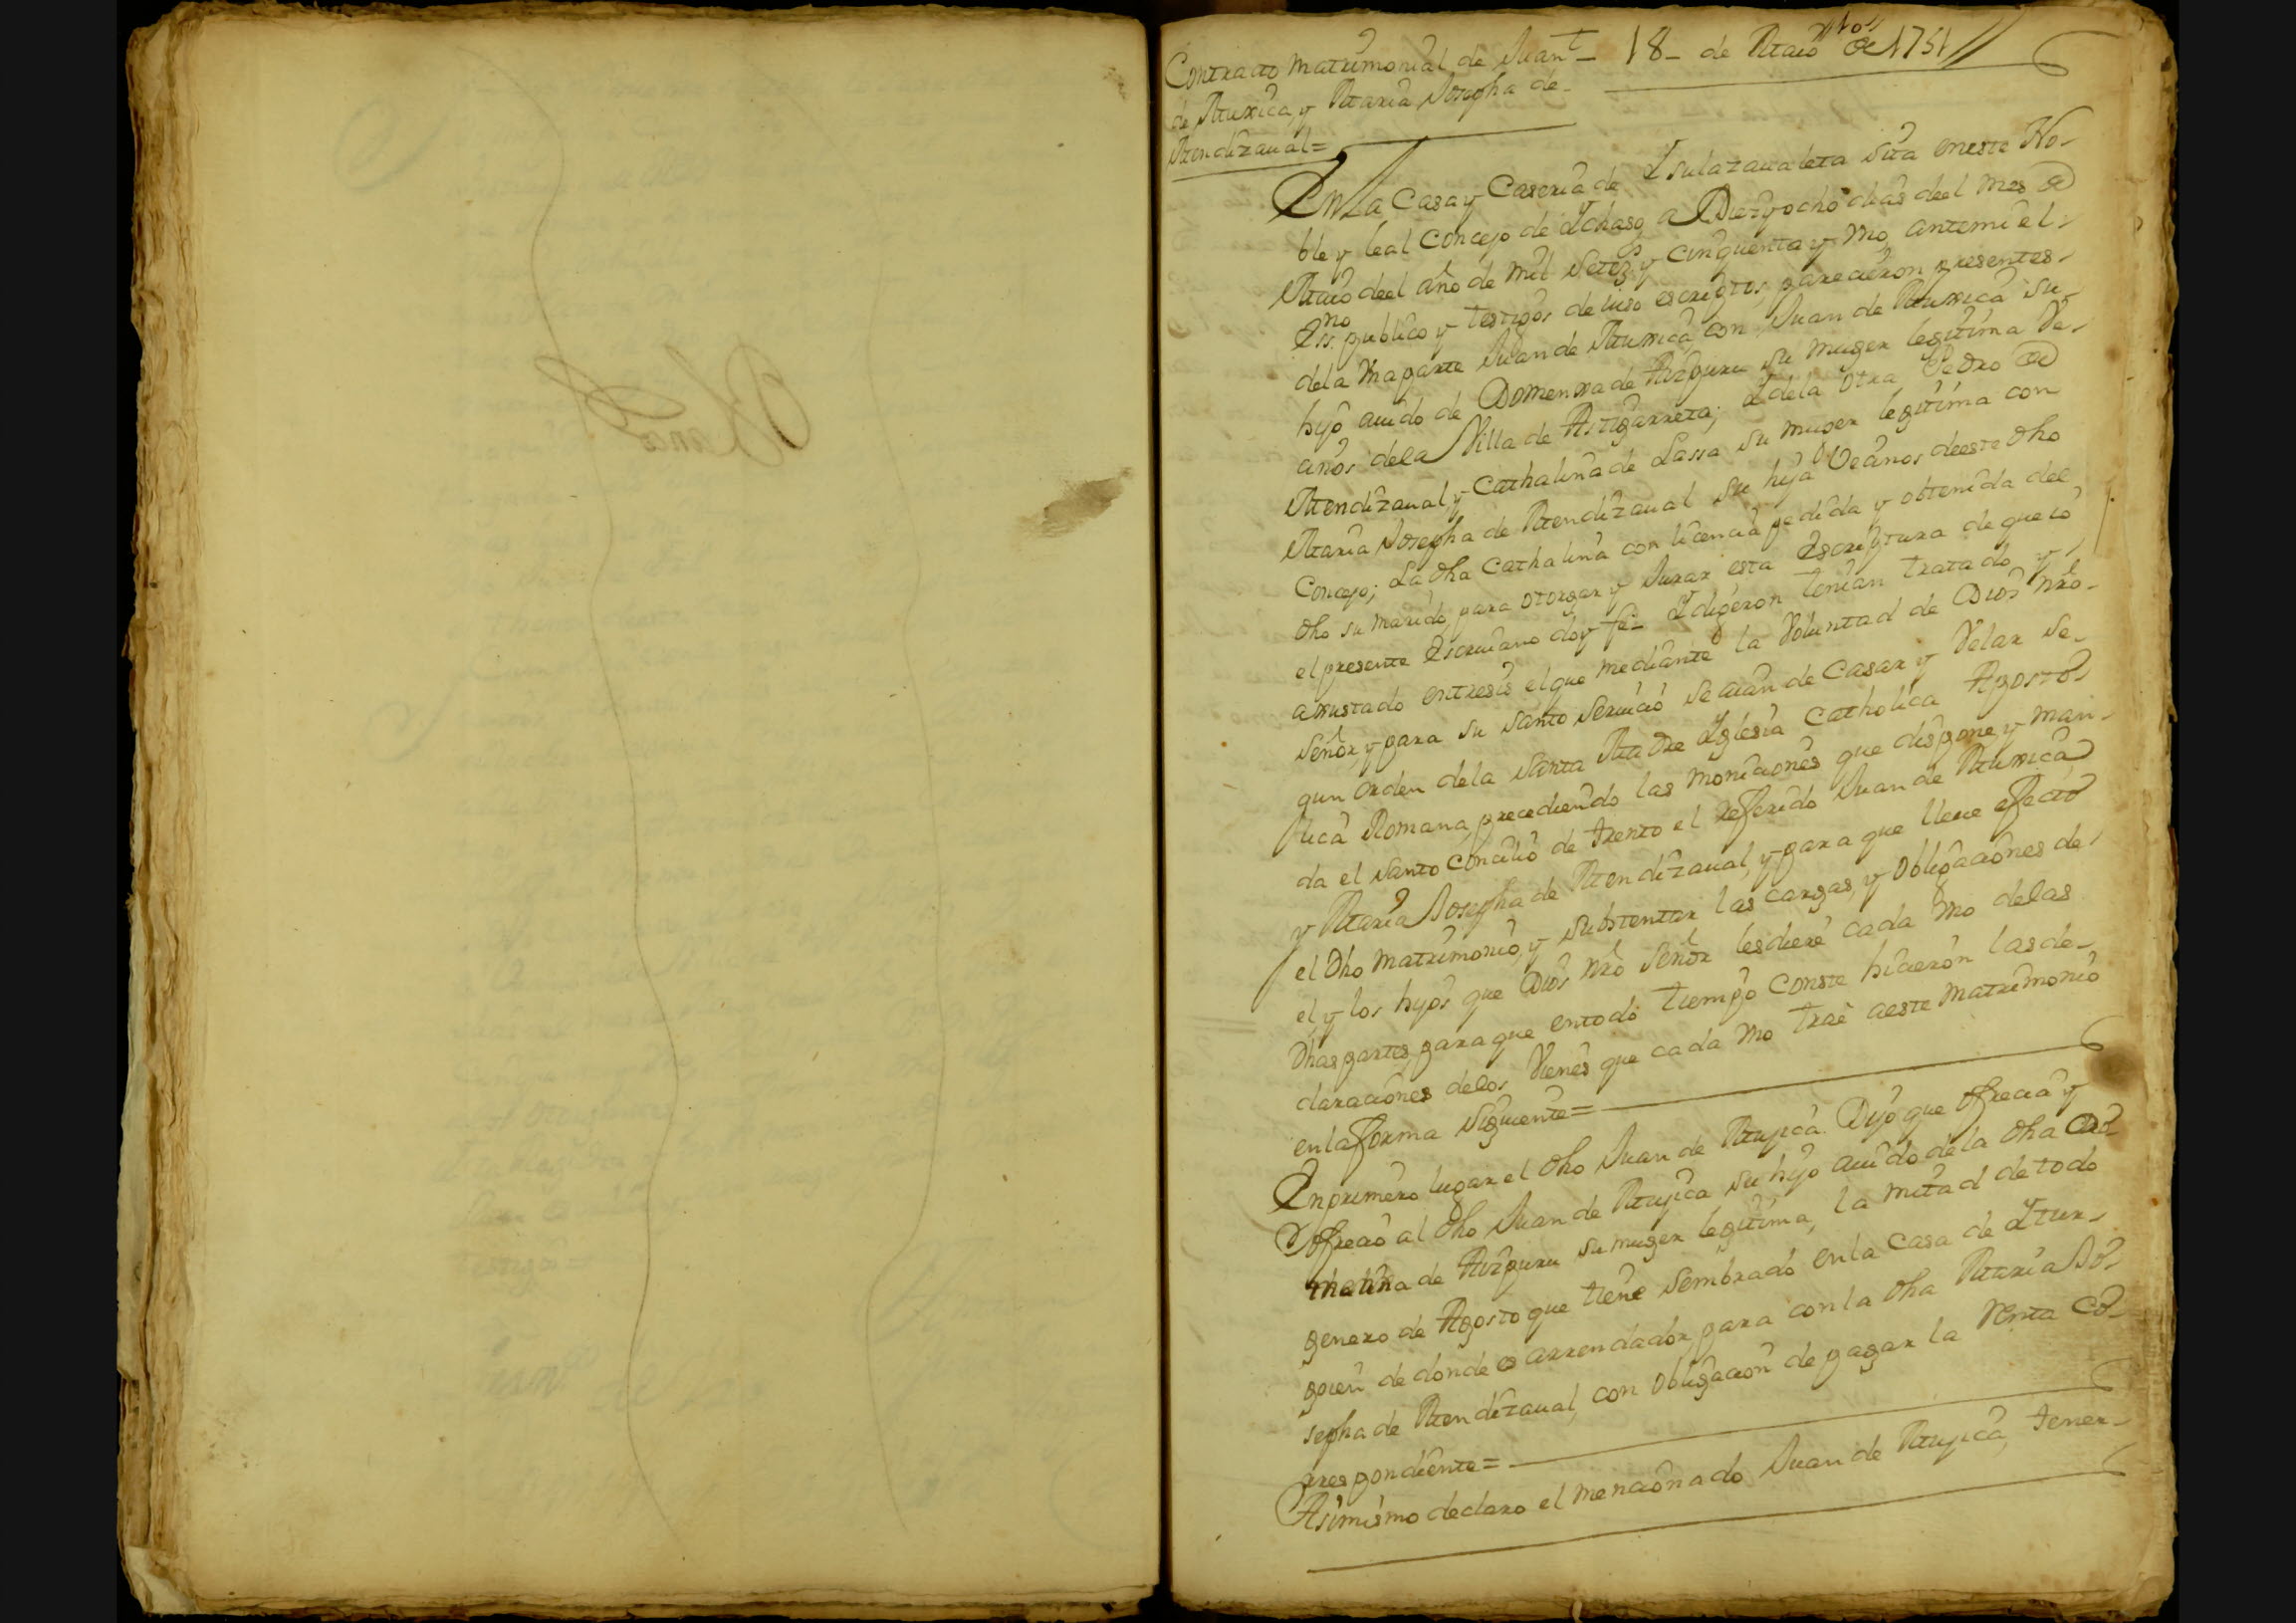 Blanco
Contracto matrimonial de Juan - 18 - de Maio de 1751
de Muxica, y Maria Josepha de
Mendizaual=
En la Casa y Caseria de Ysulazaualeta sita en este No-
ble y leal Concejo de Ychaso, a Diez y ocho dias deel mes de
Maio deel año de mil setez.s y cinquenta y uno, ante mi el
Ess.no publico y testigos de iuso escriptos, parecieron presentes
dela una parte Juan de Muxica, con Juan de Muxica su
hijo auido de Domenxa de Aizpuru su muger legitima Ve-
cinos dela Villa de Astigarreta; Y dela otra Pedro de
Mendizaual, y Cathalina de Lassa su muger legitima con
Maria Josepha de Mendizaual su hija Vecinos deeste dho
Concejo; La dha Cathalina con licencia pedida y obtenida del
dho su marido, para otorgar y Jurar esta Escriptura de que io
el presente Escriuano doy fe= Y digeron tenian tratado y
axustado entresis el que mediante la Voluntad de Dios nro
Señor, y para su santo seruicio se auian de Casar y Velar se-
gun orden dela Santa Madre Yglesia Catholica Aposto-
lica Romana, precediendo las moniciones que dispone y man-
da el Santo Concilio de Trento el referido Juan de Muxica
y Maria Josepha de Mendizaual, y para que lleue efecto
el dho matrimonio, y substentar las cargas, y obligaciones de
el, y los hijos que Dios nro Señor les diere cada uno delas
dhas partes, para que entodo tiempo conste hicieron las de-
claraciones delos Vienes que cada uno trae aeste matrimonio
en la forma siguiente=
En primero lugar el dho Juan de Mujica. Dijo que ofrecia y
ofrecio al dho Juan de Mujica su hijo auido de la dha Do-
menxa de Aizpuru su muger legitima, la mitad de todo
genero de Agosto que tiene sembrado en la Casa de Ytur-
goien de donde es arrendador, para con la dha Maria Jo-
sepha de Mendizaual, con obligacion de pagar la renta co-
rrespondiente=
Asimismo declaro el mencionado Juan de Mujica, tener